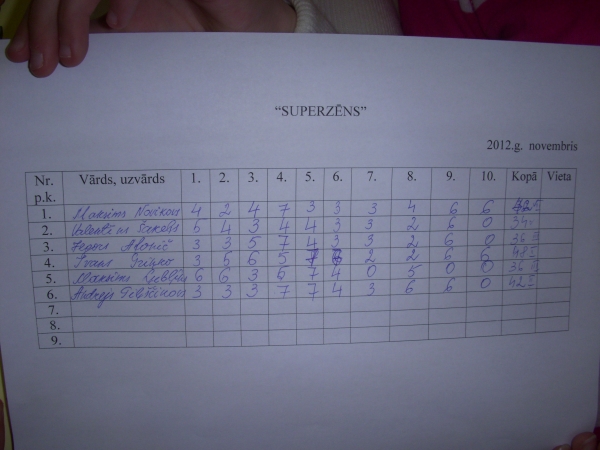 “SUPERZĒNS”
2012.g. novembris
Nr. p.k. Vārds, uzvārds 1. 2. 3. 4. 5. 6. 7. 8. 9. 10. Kopā Vieta
1. Maksims Novikovs 4 2 4 7 3 3 3 4 6 6
2. 5 4 3 4 4 3 3 2 6 0 34
3. 3 3 5 7 4 3 3 2 6 0 36
4. 3 5 6 5 2 2 6 48
5. Maksims 6 6 3 6 7 4 0 5 0 0
6. Andrejs 3 3 3 7 7 4 3 6 6 0 42
7.
8.
9.